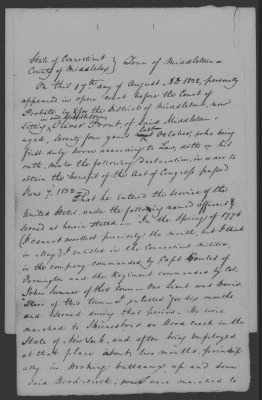 State of Connecticut } Town of Middletown
County of Middlesex
On this 17th day of August A.D. 1832, personally
appeared in open court before the Court of
Probate, for the District of Middletown, now
sitting at Middletown Oliver of said Middletown
aged seventy four years last October, who being
first duly sworn according to Law, doth on his
oath, make the following Declaration, in order to
obtain the benefit of the Act of Congress passed
June 7. 1832. That he entered the service of the
United States, under the following named officers &
served as herein stated. In the Spring of 1776
(I cannot recollect precisely the month, but I think
in May) I enlisted in the Connecticut militia,
in the company commanded by Capt. of
Farmington and the Regiment commanded by Col.
John Sumner of this town. Our Lieut was David
Starr of this town. I enlisted for six months
and served during that period. We were
marched to Skenesboro on Wood creek in the
State of New York, and after being employed
at that place about two months, principally
in working batteaux up and down
said Wood-creek, we were marched to